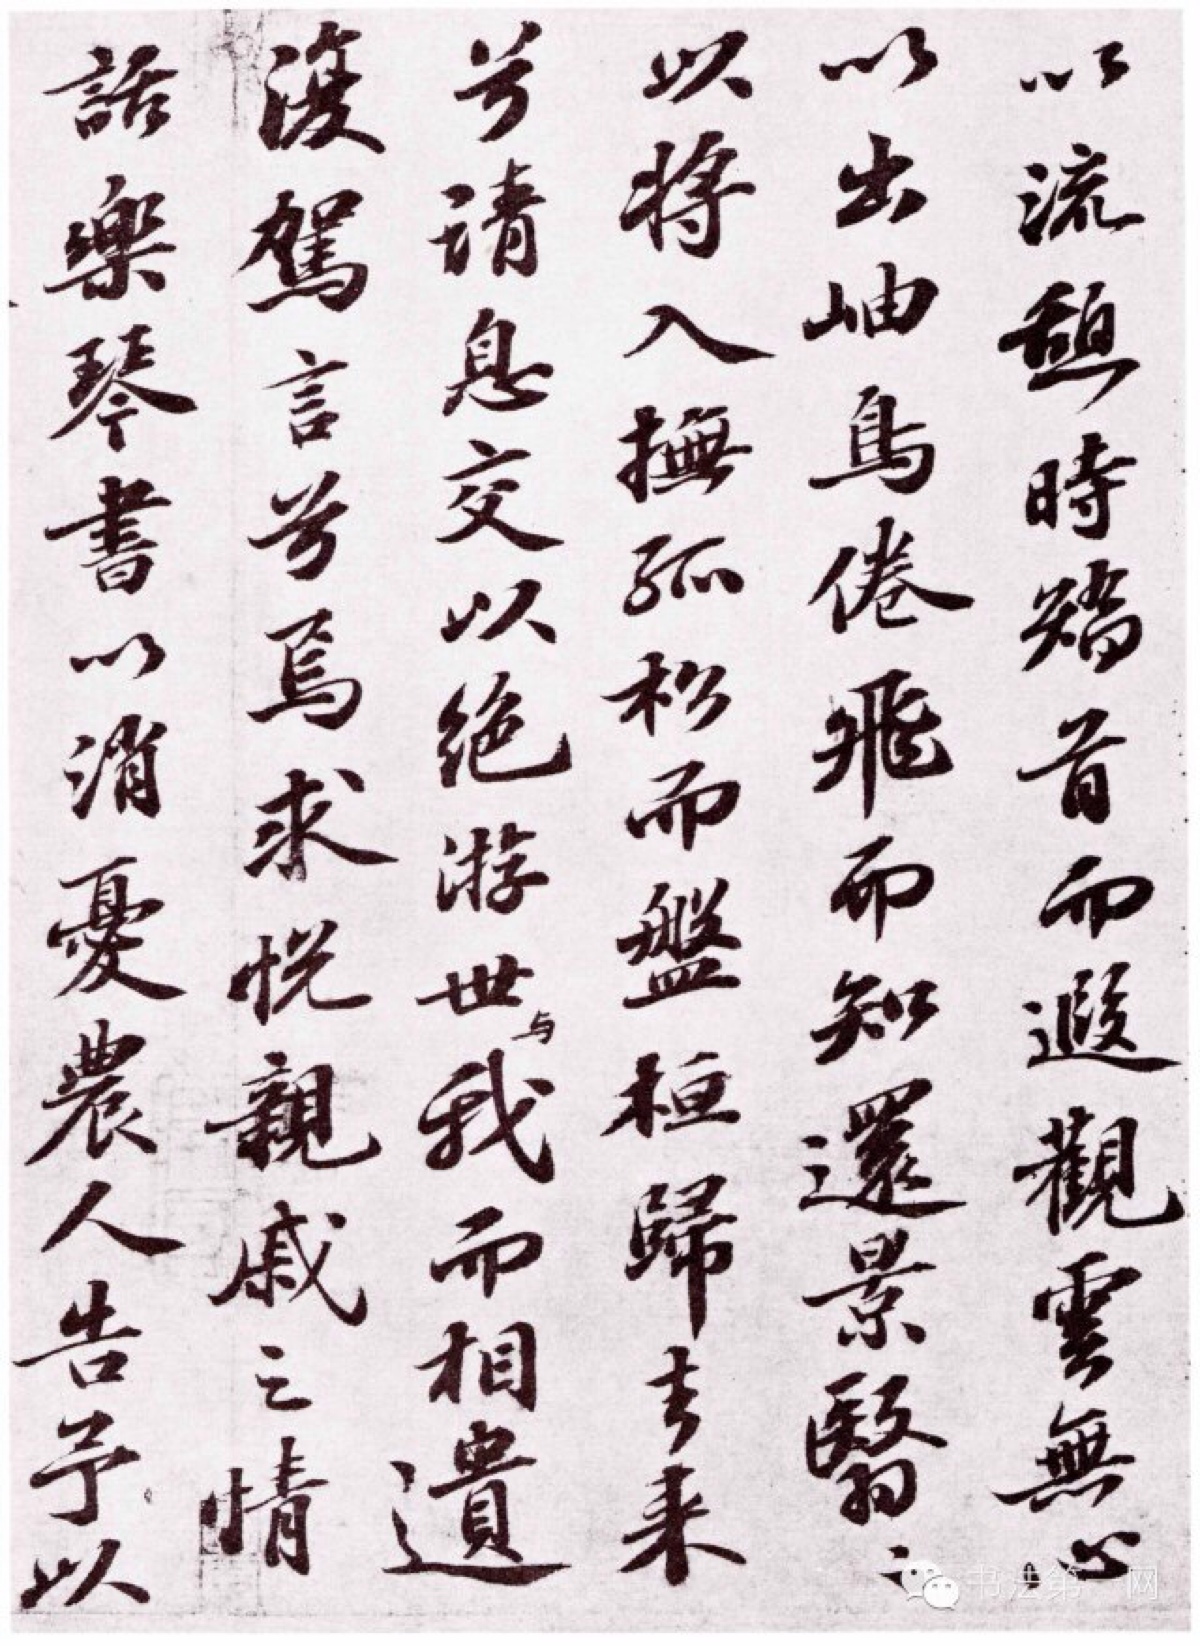 以流憩時矯首而遐觀雲無心
以出岫鳥倦飛而知還景翳々
以將入撫孤松而盤桓歸去来
兮請息交以絕游世与我而相遺
復駕言兮焉求悅親戚之情
話樂琴書以消憂農人告予以
书法第一网